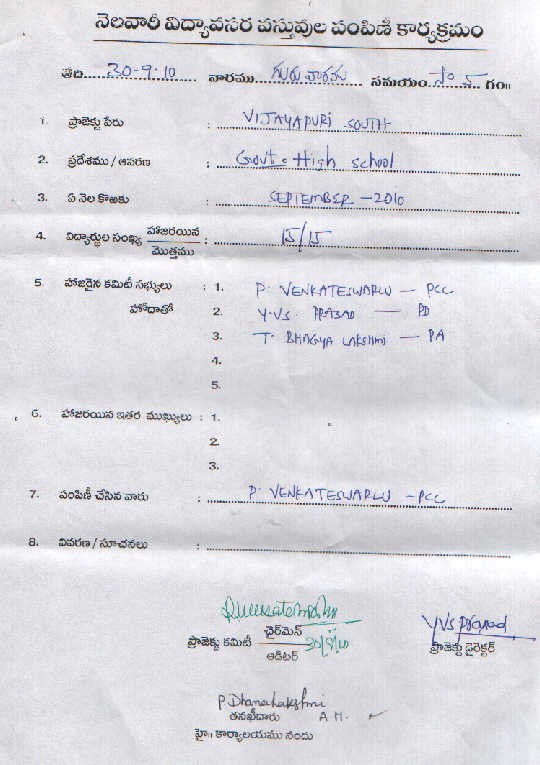 నెలవారీ విద్యావసర వస్తువుల పంపిణీ కార్యక్రమం
తేది..... 30-9-10 ..... వారము గురువారము సమయం సా 5 గం॥
1. ప్రాజెక్టు పేరు : VIJAYAPURI SOUTH
2. ప్రదేశము / ఆవరణ : Govt. High school
3. ఏ నెల కొఱకు : SEPTEMBER - 2010
4. విద్యార్థుల సంఖ్య హాజరయిన / మొత్తము : 15/15
5. హాజరైన కమిటీ సభ్యులు : 1. P. VENKATESWARLU - PCC
హోదాతో 2. Y.V.S. PRASAD - PD
3. T. BHAGYA LAKSHMI - PA
4.
5.
6. హాజరయిన ఇతర ముఖ్యులు : 1.
2.
3.
7. పంపిణీ చేసిన వారు : P. VENKATESWARLU - PCC
8. వివరణ / సూచనలు :
ప్రాజెక్టు కమిటీ ఛైర్‌మెన్ / ఆడిటర్ 30/9/10
YVS Prasad
ప్రాజెక్టు డైరెక్టర్
P Dhanalakshmi
తనఖీదారు A.H.
హై॥ కార్యాలయము నందు